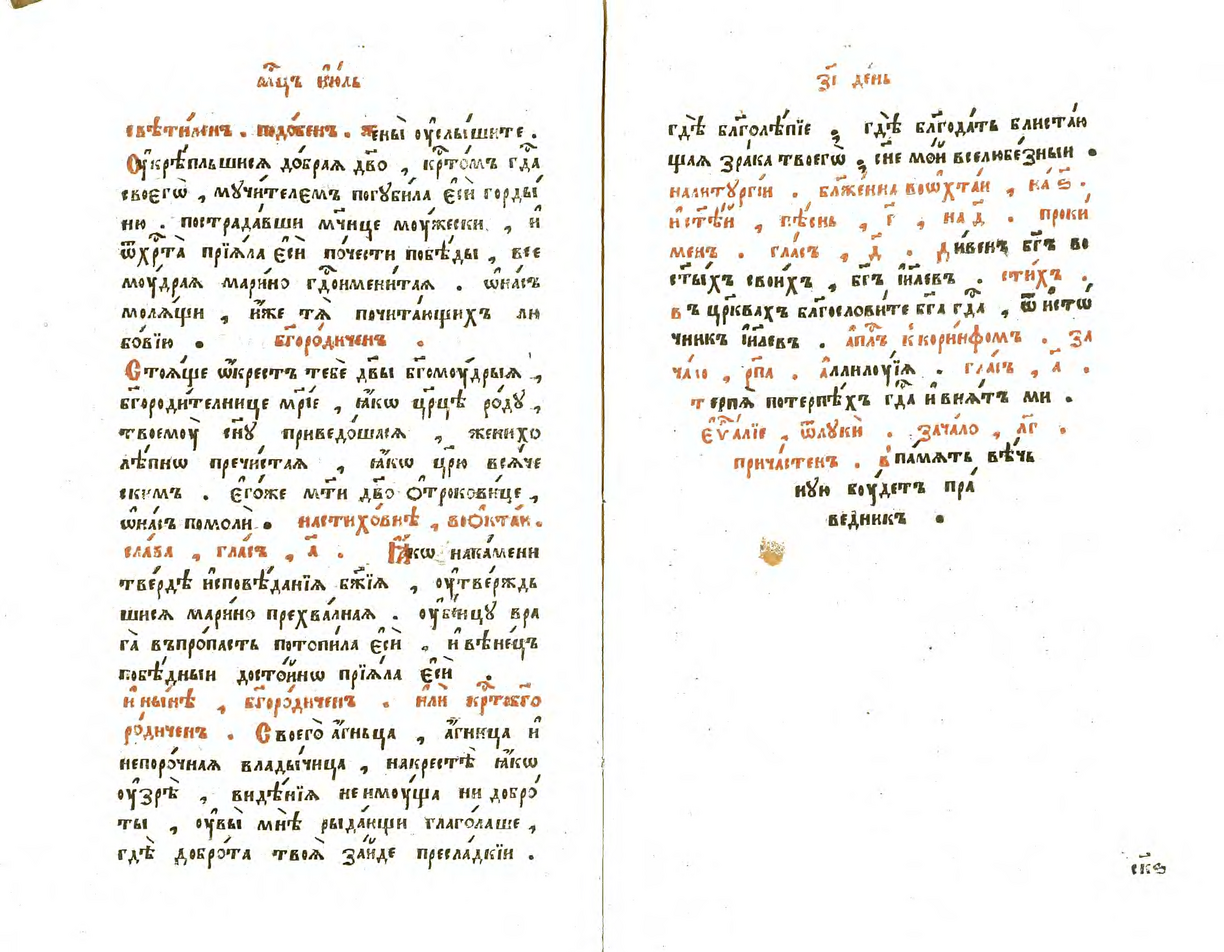 мⷭ҇цъ і҆ю́ль
свѣти́ленъ . подо́бенъ . жены̀ ᲂу҆слы́шите .
Оу҆крѣпльшисѧ до́браѧ дв҃о , крⷭ҇то́мъ гдⷭ҇а
своегѡ̀ , мᲂучи́телемъ погꙋби́ла є҆сѝ горды́
ню . пострада́вши мч҃нице мᲂу́жески , и҆
ѿхрⷭ҇та̀ прїѧ́ла є҆сѝ по́чести побѣ́ды , все
мᲂу́драѧ мари́но гдⷭ҇оимени́таѧ . ѡ҆на́съ
молѧ́щи , и҆́же тѧ̀ почита́ющихъ лю
бо́вїю . бг҃оро́диченъ .
Стоѧ́ще ѡ҆́крестъ тебѐ дв҃ы бг҃омᲂу́дрыѧ ,
бг҃ороди́телнице мр҃і́е , ꙗ҆́кѡ цр҃и́цѣ ро́дꙋ ,
твоемᲂу̀ сн҃ꙋ приведо́шасѧ , женихо
лѣ́пнѡ пречи́стаѧ , ꙗ҆́кѡ цр҃ю̀ всѧ́че
скимъ . є҆го́же мт҃и дв҃о ѻ҆трокови́це ,
ѡ҆на́съ помолѝ . настихо́внѣ , вѻ҆́ктаи .
сла́ва , гла́съ , а҃ . Ꙗ҆́кѡ нака́мени
тве́рдѣ и҆сповѣ́данїѧ бж҃їѧ , ᲂу҆тве́ржь
шисѧ мари́но прехва́лнаѧ . ᲂу҆бі́ицꙋ вра
га̀ въпро́пасть потопи́ла є҆сѝ . и҆вѣне́цъ
побѣ́дныи досто́йнѡ прїѧ́ла є҆сѝ .
и҆ны́нѣ , бг҃оро́диченъ . и҆лѝ крⷭ҇тобг҃о
ро́диченъ . Своего̀ а҆́гньца , а҆́гница и҆
непоро́чнаѧ влады́чица , накрестѣ̀ ꙗ҆́кѡ
ᲂу҆зрѣ̀ , видѣ́нїѧ неимᲂу́ща ни добро
ты̀ , ᲂу҆вы̀ мнѣ̀ рыда́ющи глаго́лаше ,
гдѣ̀ добро́та твоѧ̀ за́йде пресла́дкїи .
з҃і де́нь
гдѣ̀ бл҃голѣ́пїе , гдѣ̀ бл҃года́ть блиста́ю
щаѧ зра́ка твоегѡ̀ , сн҃е мо́й вселюбе́зныи .
налитꙋргі́и . бл҃же́нна вѡѡхта́и , на ѕ҃ .
и҆ст҃ѣ́й , пѣ́снь , г҃ , на д҃ . проки́
менъ . гла́съ , д҃ . Ди́венъ бг҃ъ во
ст҃ы́хъ свои́хъ , бг҃ъ і҆и҃левъ . сти́хъ .
въ цр҃квахъ благослови́те бг҃а гдⷭ҇а , ѿи҆сто́
чникъ і҆и҃левъ . а҆пⷭ҇лъ к̾кори́нѳомъ . за
ча́ло , рп҃а . а҆ллилᲂу́їѧ . гла́съ , а҃ .
терпѧ̀ потерпѣ́хъ гдⷭ҇а и҆внѧ́тъ ми .
є҆ѵⷢ҇а́лїе , ѿлᲂукѝ . зача́ло , лг҃ .
прича́стенъ . в па́мѧть вѣ́чь
нꙋю бᲂу́детъ пра́
ведникъ .
ск҃ѕ